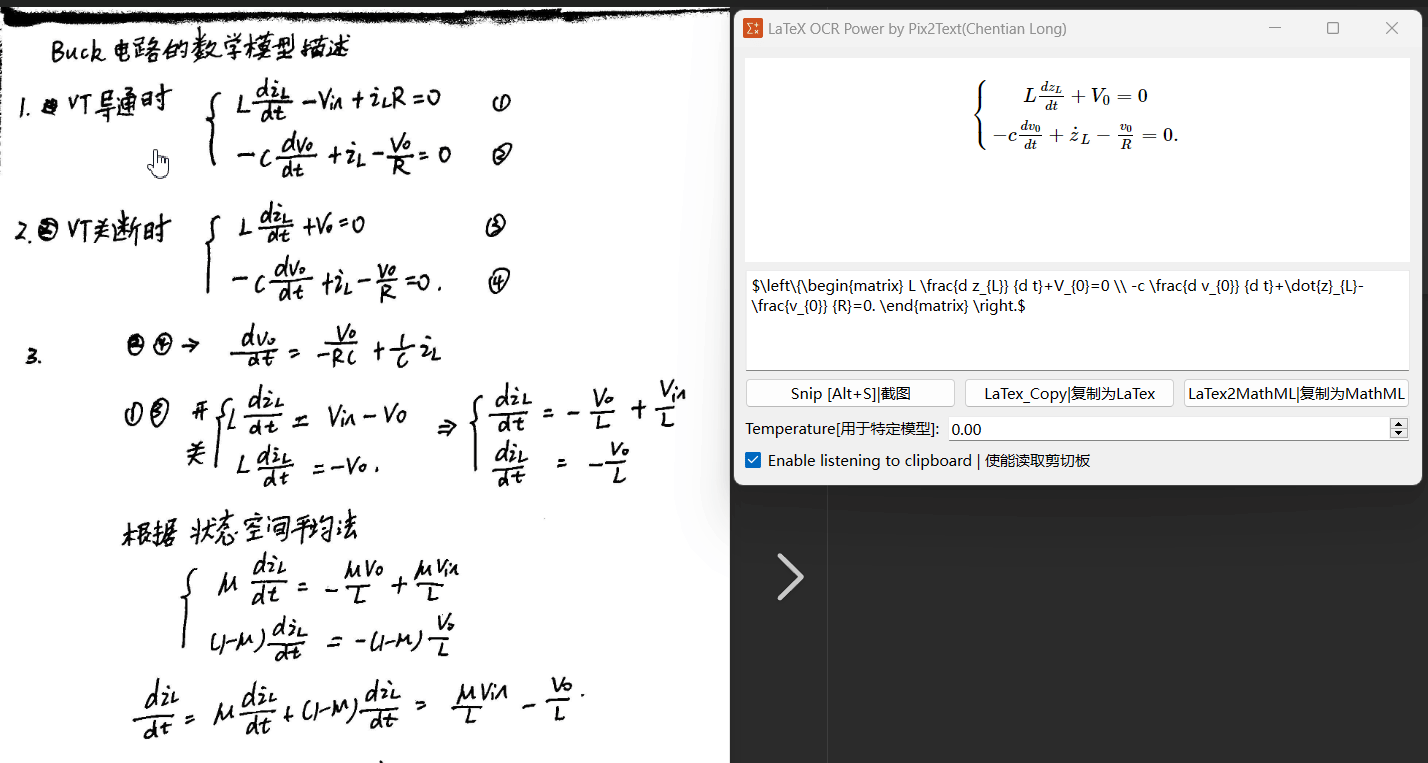 Buck电路的数学模型描述
1. VT导通时 { L diL/dt - Vin + iLR = 0 ①
-C dvo/dt + iL - Vo/R = 0 ②
2. VT关断时 { L diL/dt + Vo = 0 ③
-C dvo/dt + iL - Vo/R = 0. ④
3. ②④ → dvo/dt = Vo/-RC + 1/C iL
①③ 开 { L diL/dt = Vin - Vo ⇒ { diL/dt = - Vo/L + Vin/L
关 L diL/dt = -Vo. diL/dt = - Vo/L
根据 状态空间平均法
{ μ diL/dt = - μVo/L + μVin/L
(1-μ) diL/dt = -(1-μ) Vo/L
diL/dt = μ diL/dt + (1-μ) diL/dt = μVin/L - Vo/L.
LaTeX OCR Power by Pix2Text(Chentian Long)
{ L dz_L/dt + V_0 = 0
-c dv_0/dt + ż_L - v_0/R = 0.
$\left\{\begin{matrix} L \frac{d z_{L}} {d t}+V_{0}=0 \\ -c \frac{d v_{0}} {d t}+\dot{z}_{L}-
\frac{v_{0}} {R}=0. \end{matrix} \right.$
Snip [Alt+S]|截图 LaTex_Copy|复制为LaTex LaTex2MathML|复制为MathML
Temperature[用于特定模型]: 0.00
Enable listening to clipboard | 使能读取剪切板